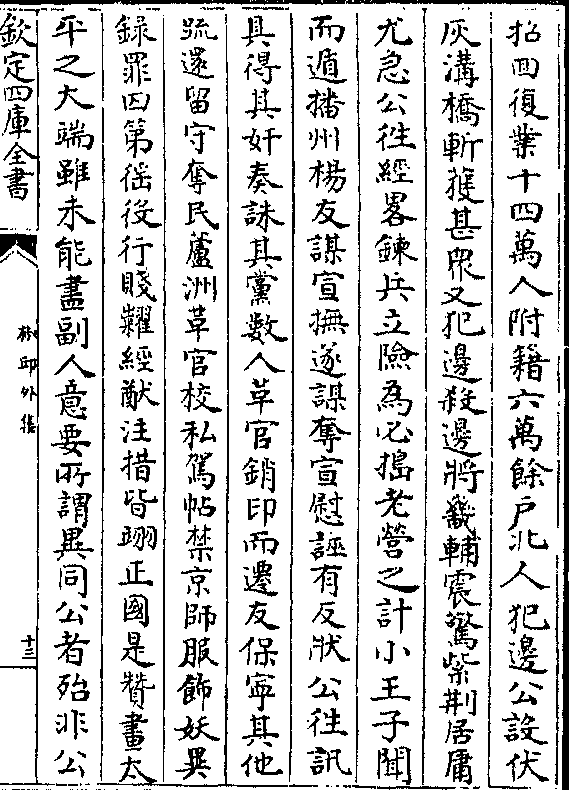 招回復業十四萬人附籍六萬餘戶北人犯邊公設伏
灰溝橋斬獲甚衆又犯邊殺邊將畿輔震驚紫荆居庸
尤急公徃經畧鍊兵立險為必搗老營之計小王子聞
而遁播州楊友謀宣撫遂謀奪宣慰誣有反狀公徃訊
具得其奸奏誅其黨數人革官銷印而遷友保寜其他
疏還留守奪民蘆洲革官校私駕帖禁京師服飾妖異
録罪囚第徭役行賤糶經猷注措皆翊正國是賛畫太
平之大端雖未能盡副人意要所謂異同公者殆非公
欽定四庫全書
椒邱外集
十三